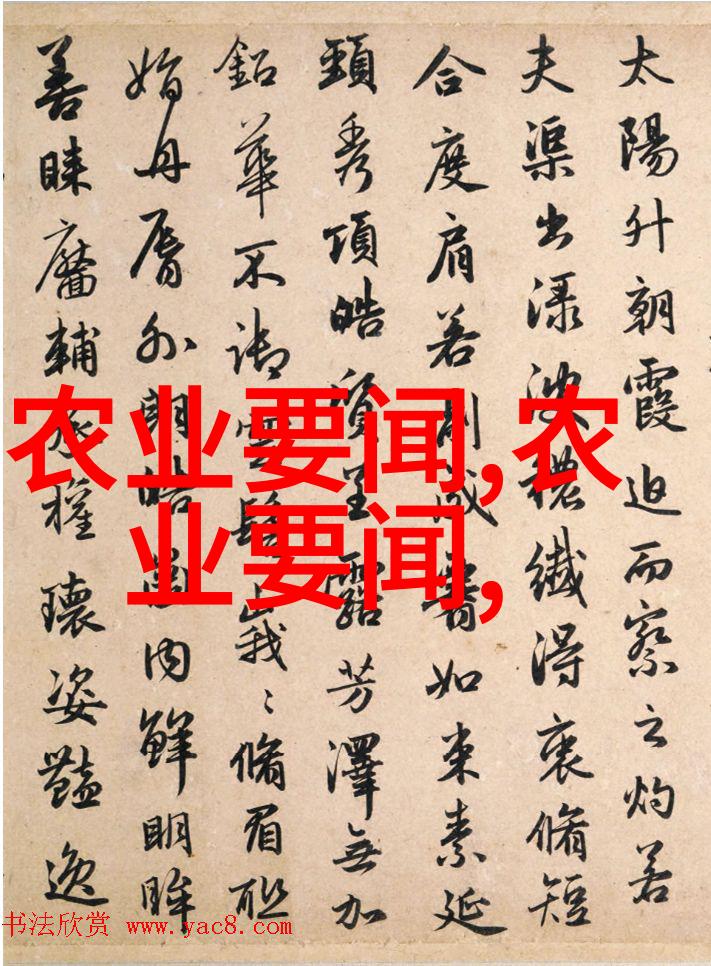 太陽升朝霞迫而察之灼若
夫渠出淥波穠纖得衷脩短
合度肩若削成如束素延
頸秀項皓質呈露芳澤無加
鉛華不御雲髻峩〻脩眉聯
娟丹脣外朗皓齒内鮮明眸
善睞靨輔承權瓌姿豔逸
农业要闻,农
业要闻,
书法欣赏 www.yac8.com